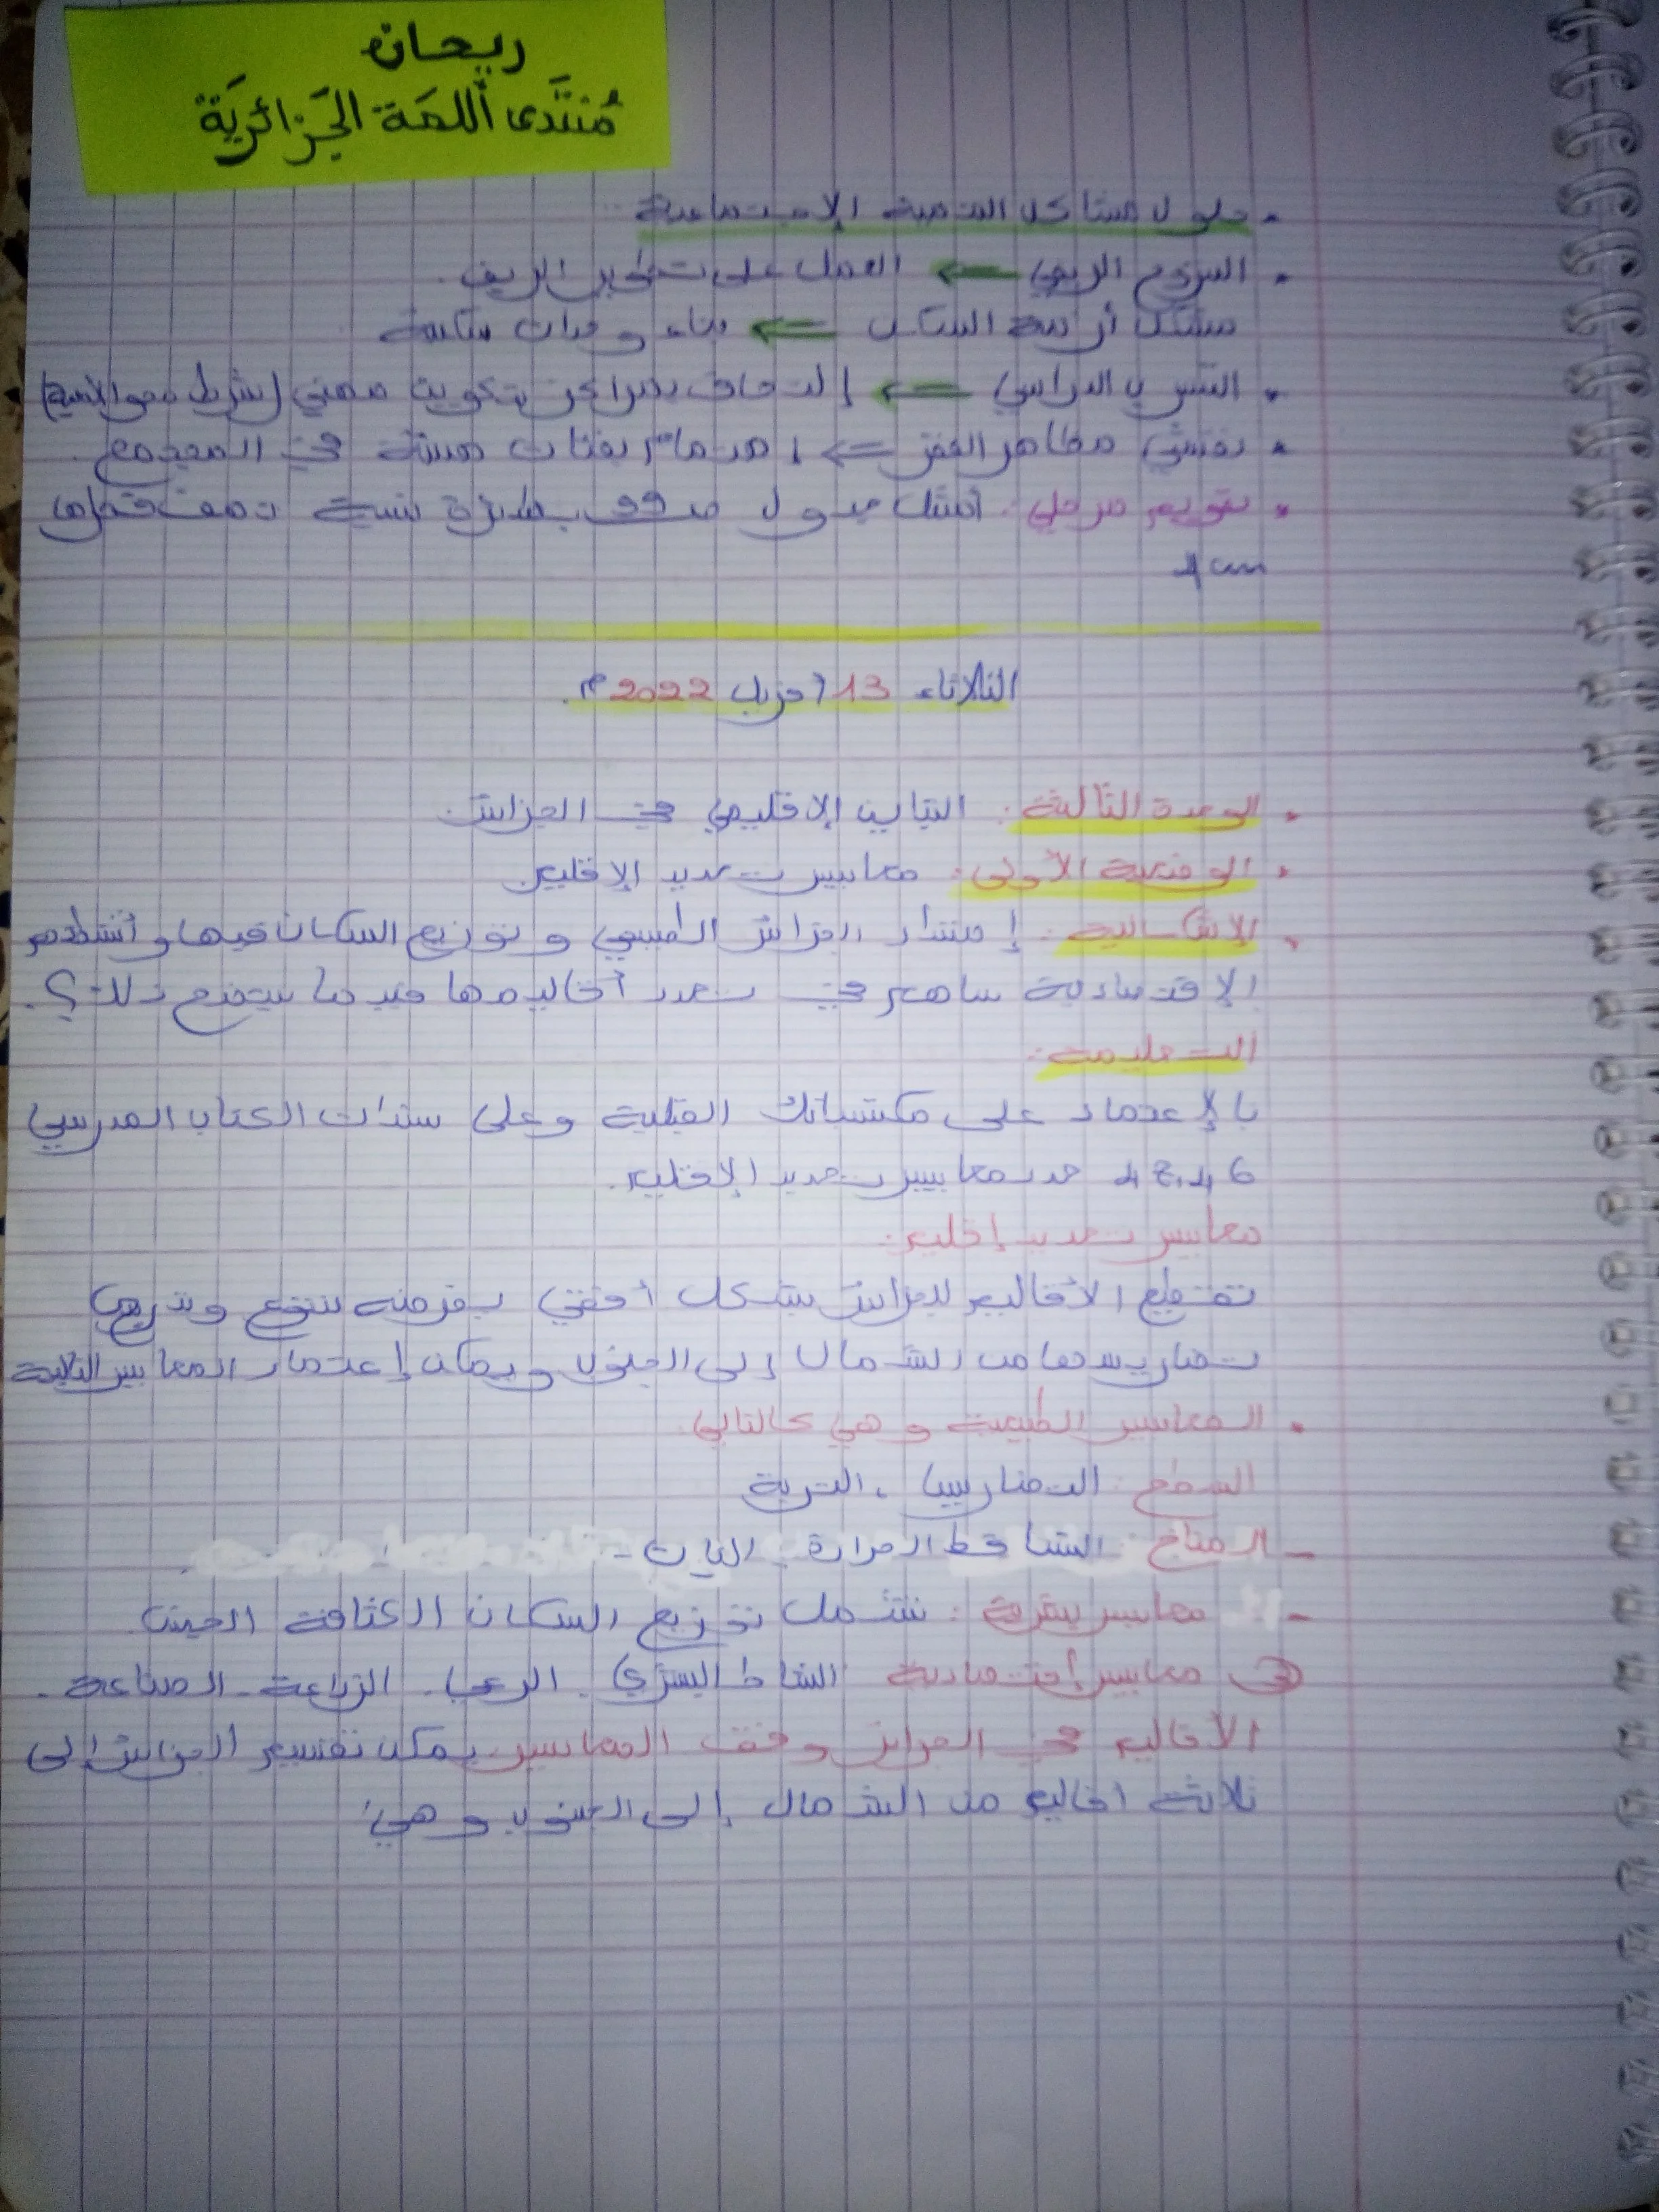 ريحان
مُنتَدى اللمَة الجَزائريَة
• حلول مشاكل التنمية الإجتماعية
• النزوح الريفي ⇐ العمل على تطوير الريف.
مشكل أزمة السكن ⇐ بناء وحدات سكنية
• التسرب الدراسي ⇐ إلتحاق بمراكز تكوين مهني (شرط محو الأمية)
• تفشي مظاهر الفقر ⇐ اهتمام بفئات هشة في المجتمع.
• تقويم مرحلي: أمثل جدول بطريقة نسبية نصف قطرها
4 cm
الثلاثاء 13 أفريل 2022 م.
• الوحدة الثالثة: التباين الإقليمي في الجزائر.
• الوضعية الأولى: معايير تحديد الإقليم
• الإشكالية: إمتداد الجزائر الطبيعي وتوزيع السكان فيها وأنشطتهم
الإقتصادية ساهم في تعدد أقاليمها فيما يتضح ذلك؟.
التعليمة:
بالإعتماد على مكتسباتك القبلية وعلى سندات الكتاب المدرسي
46، 48 حدد معايير تحديد الإقليم.
معايير تحديد إقليم:
تقطيع الأقاليم للجزائر بشكل أفقي يفرضه تنوع وتدرج
تضاريسها من الشمال إلى الجنوب ويمكن إعتماد المعايير التالية
• المعايير الطبيعية وهي كالتالي.
السطح: التضاريس، التربة
- المناخ: التساقط الحرارة النبات -
- معايير بشرية: تشمل توزيع السكان الكثافة الجنس
معايير إقتصادية النشاط البشري. الرعي. الزراعة - الصناعة.
الأقاليم في الجزائر وفق المعايير يمكن تقسيم الجزائر إلى
ثلاثة أقاليم من الشمال إلى الجنوب وهي: